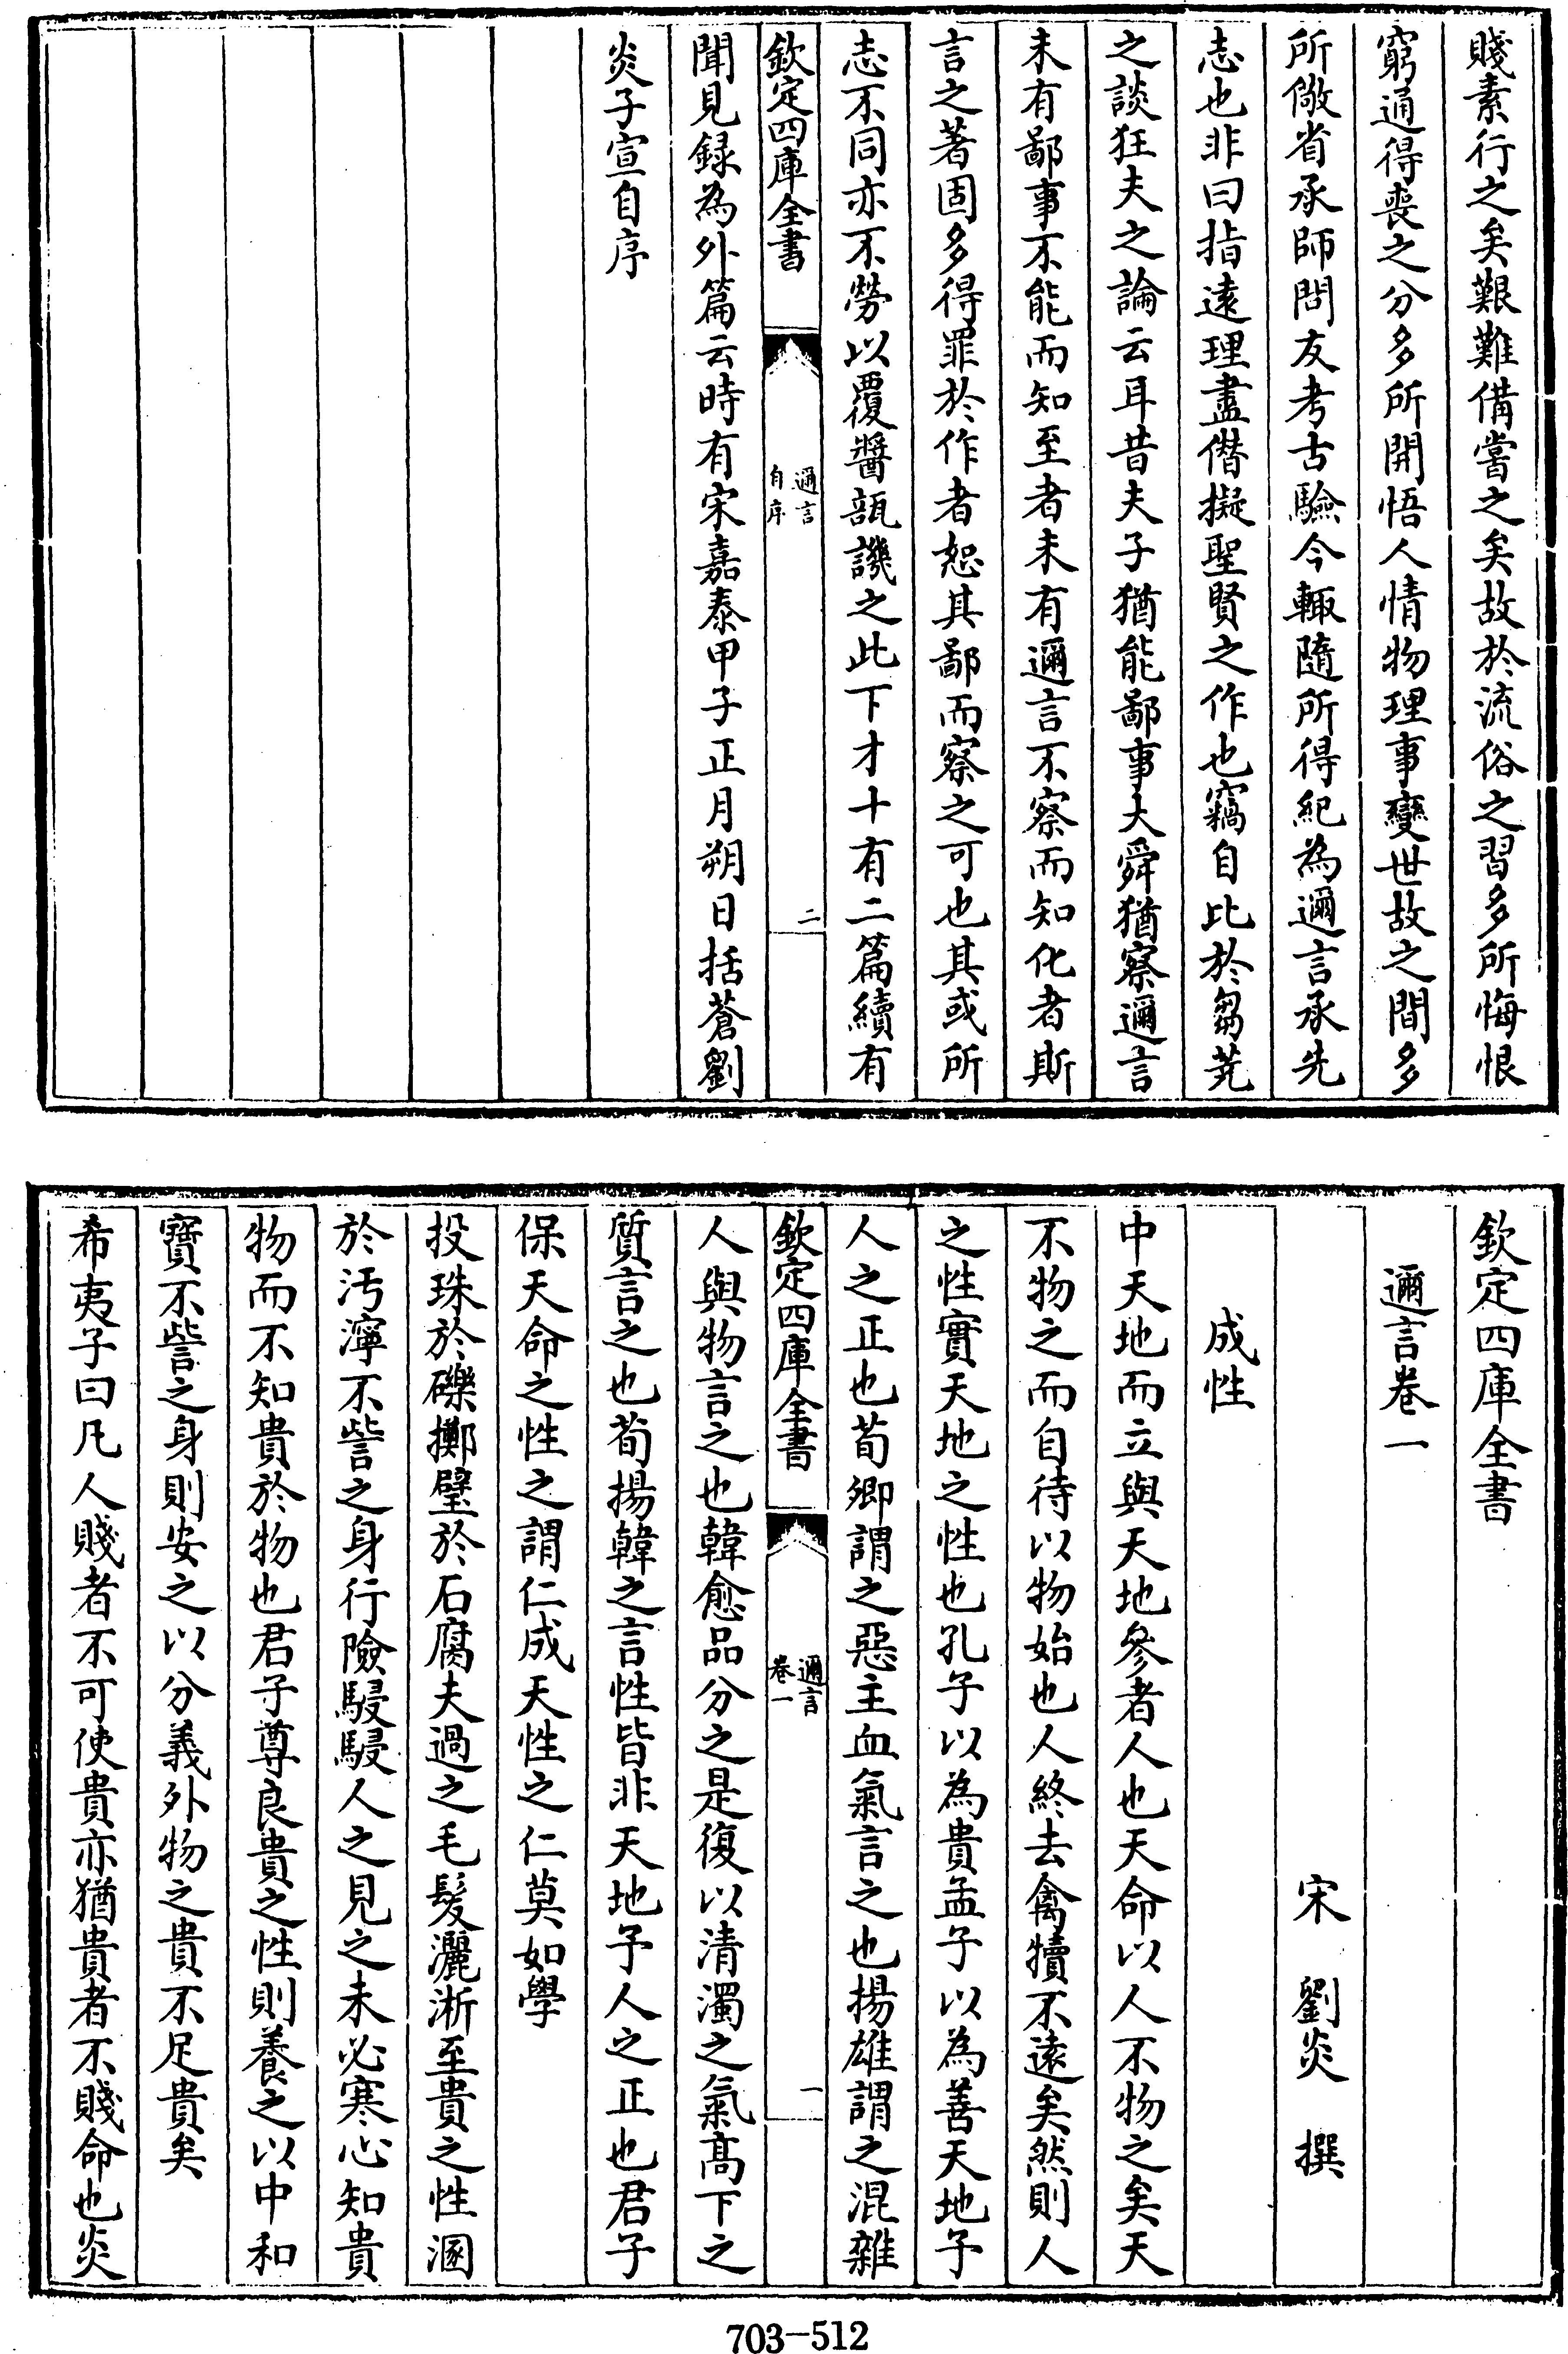 賤素行之矣艱難備嘗之矣故於流俗之習多所悔恨
窮通得喪之分多所開悟人情物理事變世故之間多
所儆省承師問友考古驗今輒隨所得紀為邇言承先
志也非曰指遠理盡僭擬聖賢之作也竊自比於芻蕘
之談狂夫之論云耳昔夫子猶能鄙事大舜猶察邇言
未有鄙事不能而知至者未有邇言不察而知化者斯
言之著固多得罪於作者恕其鄙而察之可也其或所
志不同亦不勞以覆醬瓿譏之此下才十有二篇續有
欽定四庫全書
邇言
自序
二
聞見録為外篇云時有宋嘉泰甲子正月朔日括蒼劉
炎子宣自序
欽定四庫全書
邇言卷一
宋 劉炎 撰
成性
中天地而立與天地參者人也天命以人不物之矣天
不物之而自待以物始也人終去禽犢不遠矣然則人
之性實天地之性也孔子以為貴孟子以為善天地子
人之正也荀卿謂之惡主血氣言之也揚雄謂之混雜
欽定四庫全書
邇言
卷一
一
人與物言之也韓愈品分之是復以清濁之氣髙下之
質言之也荀揚韓之言性皆非天地予人之正也君子
保天命之性之謂仁成天性之仁莫如學
投珠於礫擲璧於石腐夫過之毛髮灑淅至貴之性溷
於汚濘不訾之身行險駸駸人之見之未必寒心知貴
物而不知貴於物也君子尊良貴之性則養之以中和
寶不訾之身則安之以分義外物之貴不足貴矣
希夷子曰凡人賤者不可使貴亦猶貴者不賤命也炎
703-512